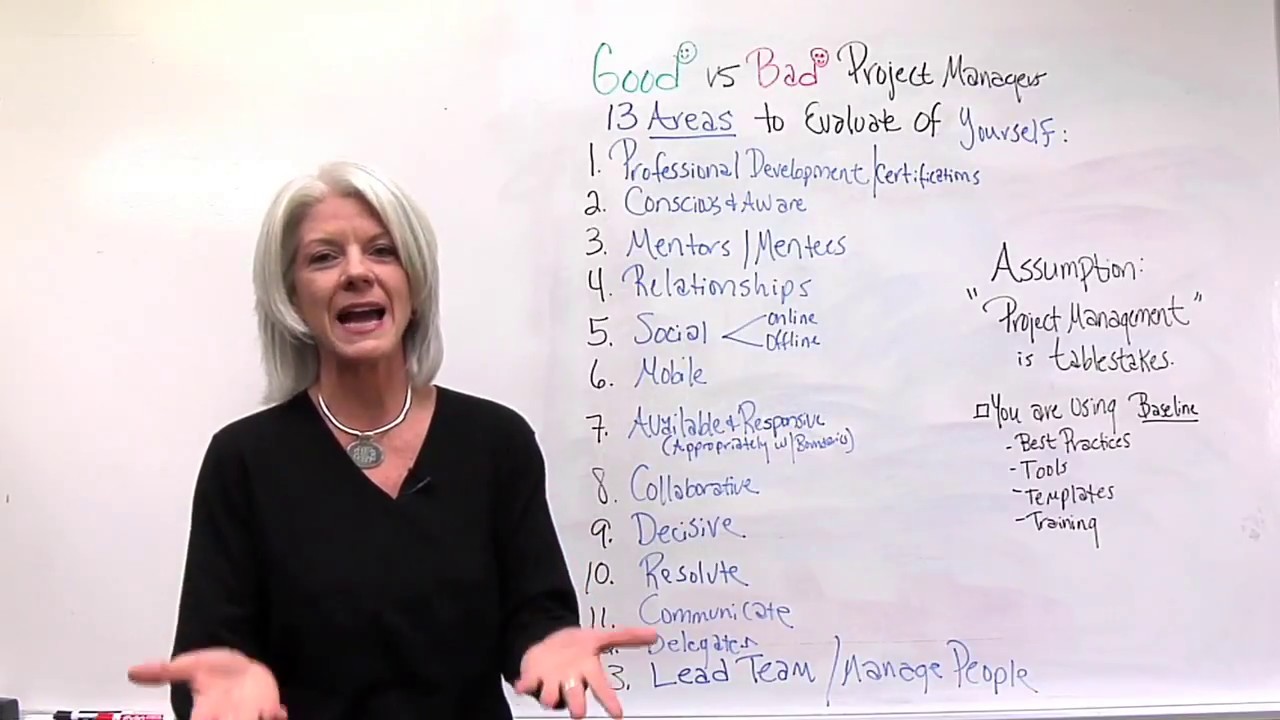 Good vs Bad Project Managers
13 Areas to Evaluate of Yourself:
1. Professional Development/Certifications
2. Conscious & Aware
3. Mentors/Mentees
4. Relationships
5. Social
Online
Offline
6. Mobile
7. Available & Responsive
(Appropriately w/
8. Collaborative
9. Decisive
10. Resolute
11. Communicate
Delegates
3. Lead Team / Manage People
Assumption:
"Project Management"
is tablestakes.
You are Using Baseline
- Best Practices
- Tools
- Templates
- Training